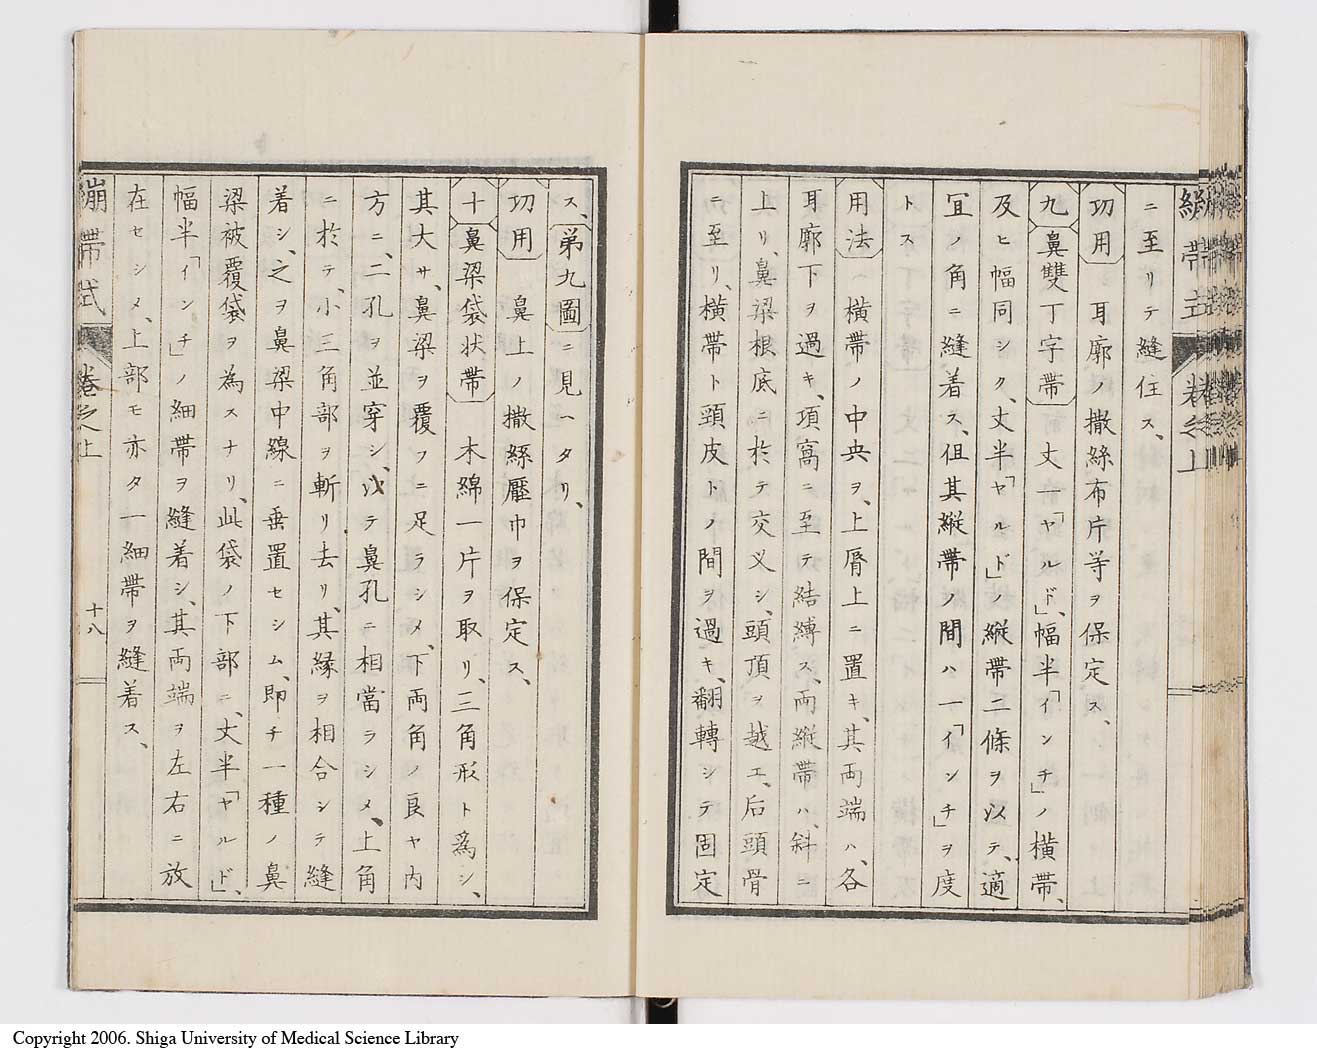 ニ至リテ縫住ス、
功用 耳廓ノ撒絲布片等ヲ保定ス、
九 鼻雙丁字帶 丈一「ヤルド」、幅半「インチ」ノ横帶、
及ヒ幅同シク、丈半「ヤルド」ノ縦帶二條ヲ以テ、適
宜ノ角ニ縫着ス、但其縦帶ノ間ハ一「インチ」ヲ度
トス
用法 横帶ノ中央ヲ、上脣上ニ置キ、其両端ハ、各
耳廓下ヲ過キ、項窩ニ至テ結縛ス、両縦帶ハ、斜ニ
上リ、鼻梁根底ニ於テ交叉シ、頭頂ヲ越エ、后頭骨
ニ至リ、横帶ト頸皮トノ間ヲ過キ、翻轉シテ固定
ス、第九圖ニ見ヘタリ、
功用 鼻上ノ撒絲壓巾ヲ保定ス、
十 鼻梁袋状帶 木綿一片ヲ取リ、三角形ト為シ、
其大サ、鼻梁ヲ覆フニ足ラシメ、下両角ノ良ヤ内
方ニ、二孔ヲ並穿シ、以テ鼻孔ニ相當ラシメ、上角
ニ於テ、小三角部ヲ斬リ去リ、其縁ヲ相合シテ縫
着シ、之ヲ鼻梁中線ニ垂置セシム、即チ一種ノ鼻
梁被覆袋ヲ為スナリ、此袋ノ下部ニ、丈半「ヤルド」、
幅半「インチ」ノ細帶ヲ縫着シ、其両端ヲ左右ニ放
在セシメ、上部モ亦タ一細帶ヲ縫着ス、
繃帶式 卷之上 十八
Copyright 2006. Shiga University of Medical Science Library